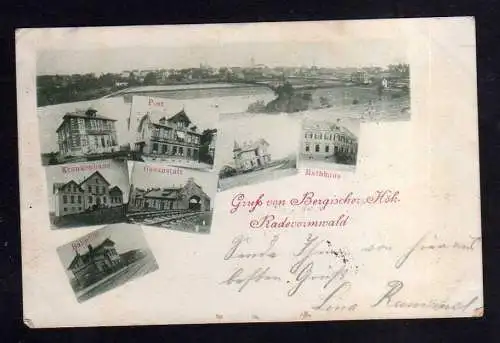 Post
Krankenhaus
Gasanstalt
Rathhaus
Bahnhof
Gruß von Bergischer Hök.
Radevormwald
Sende Ihnen von hier aus
besten Gruß
Lina